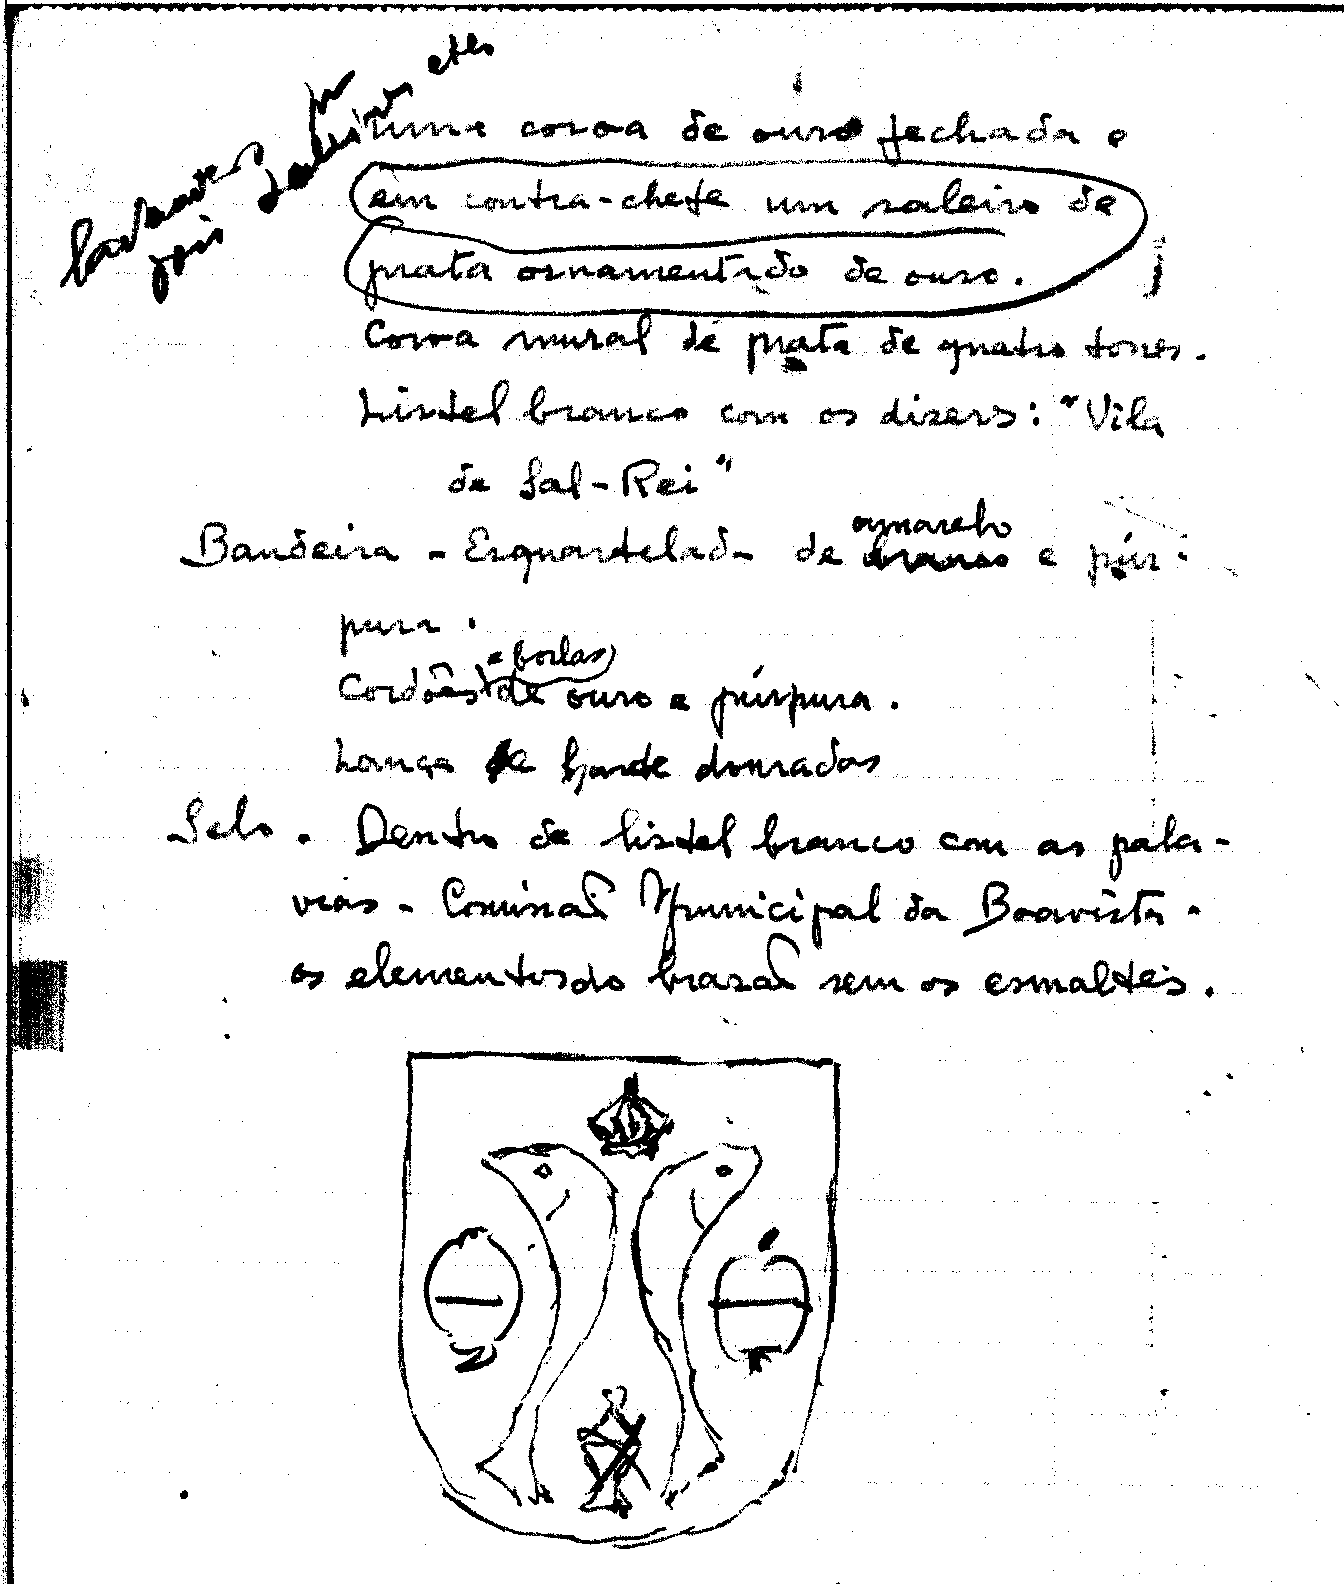 uma coroa de ouro fechada e
em contra-chefe um saleiro de
prata ornamentado de ouro.
Coroa mural de prata de quatro torres.
Listel branco com os dizeres: "Vila
de Sal-Rei"
amarelo
Bandeira - Esquartelada de branco e púr-
pura.
e borlas
Cordões de ouro e púrpura.
Lança e haste douradas
Selo. Dentro de listel branco com as pala-
vras - Comissão Municipal da Boavista -
os elementos do brazão sem os esmaltes.